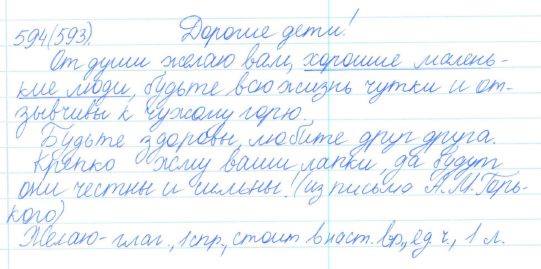 594(593). Дорогие дети!
От души желаю вам, хорошие малень-
кие люди, будьте всю жизнь чутки и от-
зывчивы к чужому горю.
Будьте здоровы, любите друг друга.
Крепко жму ваши лапки, да будут
они честны и сильны! (из письма А.М.Горь-
кого)
Желаю- глаг., 1спр., стоит в наст. вр., ед.ч., 1 л.